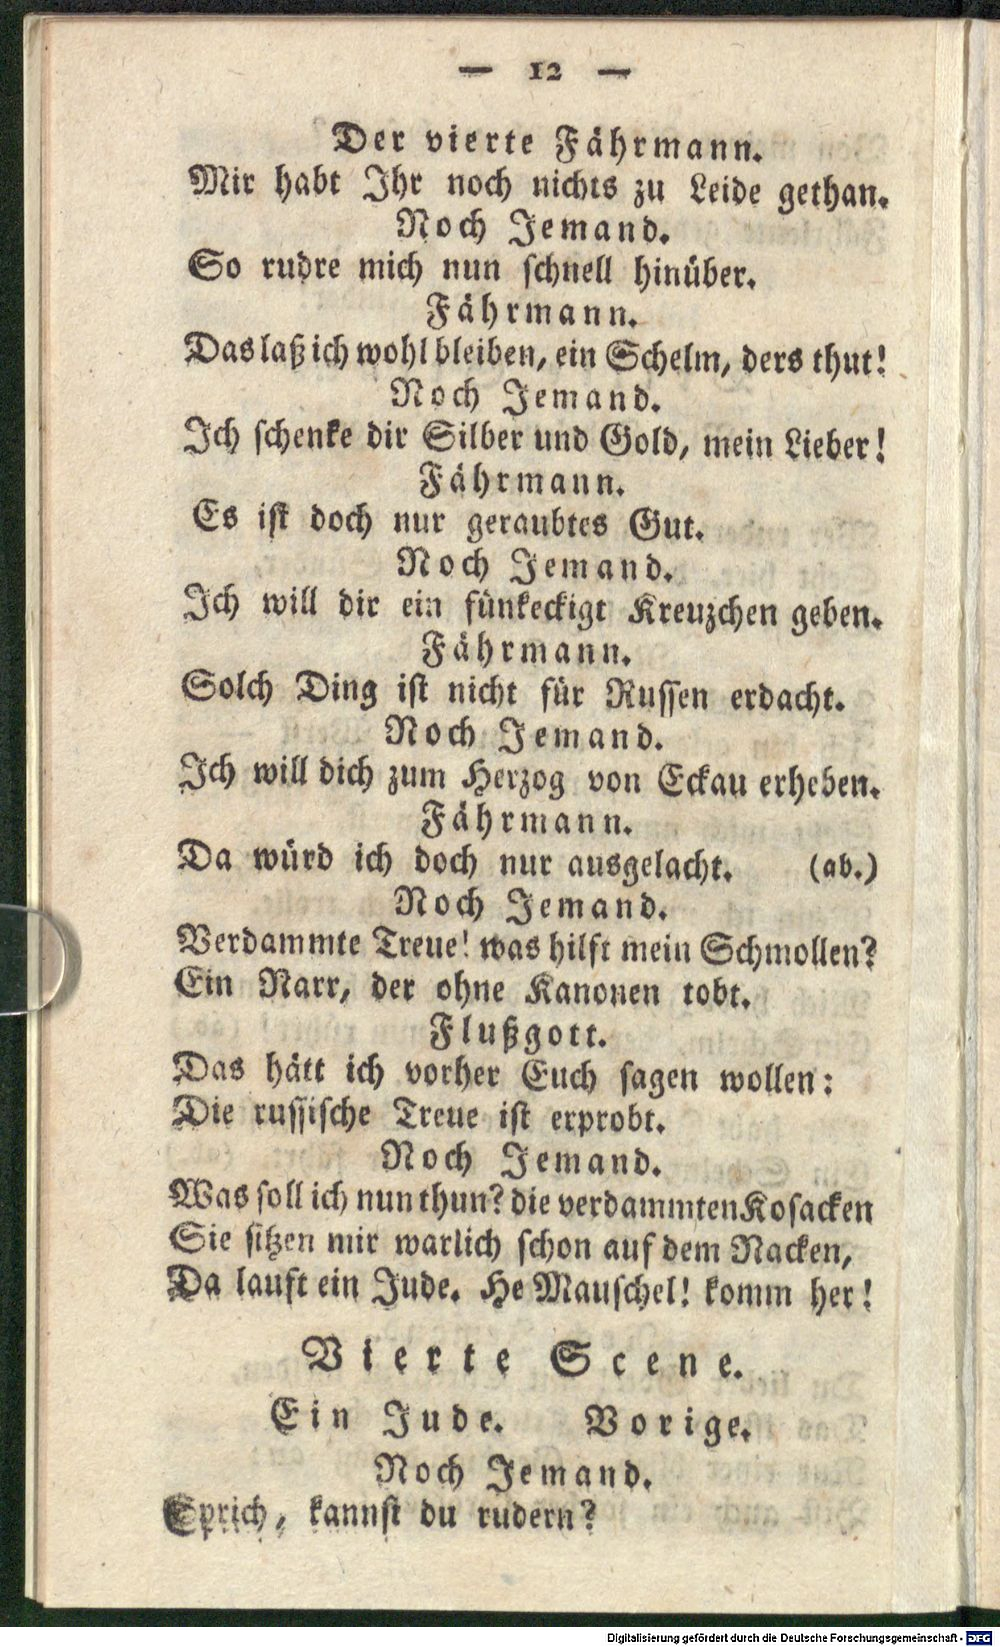 — 12 —
Der vierte Fährmann.
Mir habt Ihr noch nichts zu Leide gethan.
Noch Jemand.
So rudre mich nun schnell hinüber.
Fährmann.
Das laß ich wohl bleiben, ein Schelm, ders thut!
Noch Jemand.
Ich schenke dir Silber und Gold, mein Lieber!
Fährmann.
Es ist doch nur geraubtes Gut.
Noch Jemand.
Ich will dir ein fünkeckigt Kreuzchen geben.
Fährmann.
Solch Ding ist nicht für Russen erdacht.
Noch Jemand.
Ich will dich zum Herzog von Eckau erheben.
Fährmann.
Da würd ich doch nur ausgelacht. (ab.)
Noch Jemand.
Verdammte Treue! was hilft mein Schmollen?
Ein Narr, der ohne Kanonen tobt.
Flußgott.
Das hätt ich vorher Euch sagen wollen:
Die russische Treue ist erprobt.
Noch Jemand.
Was soll ich nun thun? die verdammten Kosacken
Sie sitzen mir warlich schon auf dem Nacken,
Da lauft ein Jude. He Mauschel! komm her!
Vierte Scene.
Ein Jude. Vorige.
Noch Jemand.
Sprich, kannst du rudern?
Digitalisierung gefördert durch die Deutsche Forschungsgemeinschaft - DFG